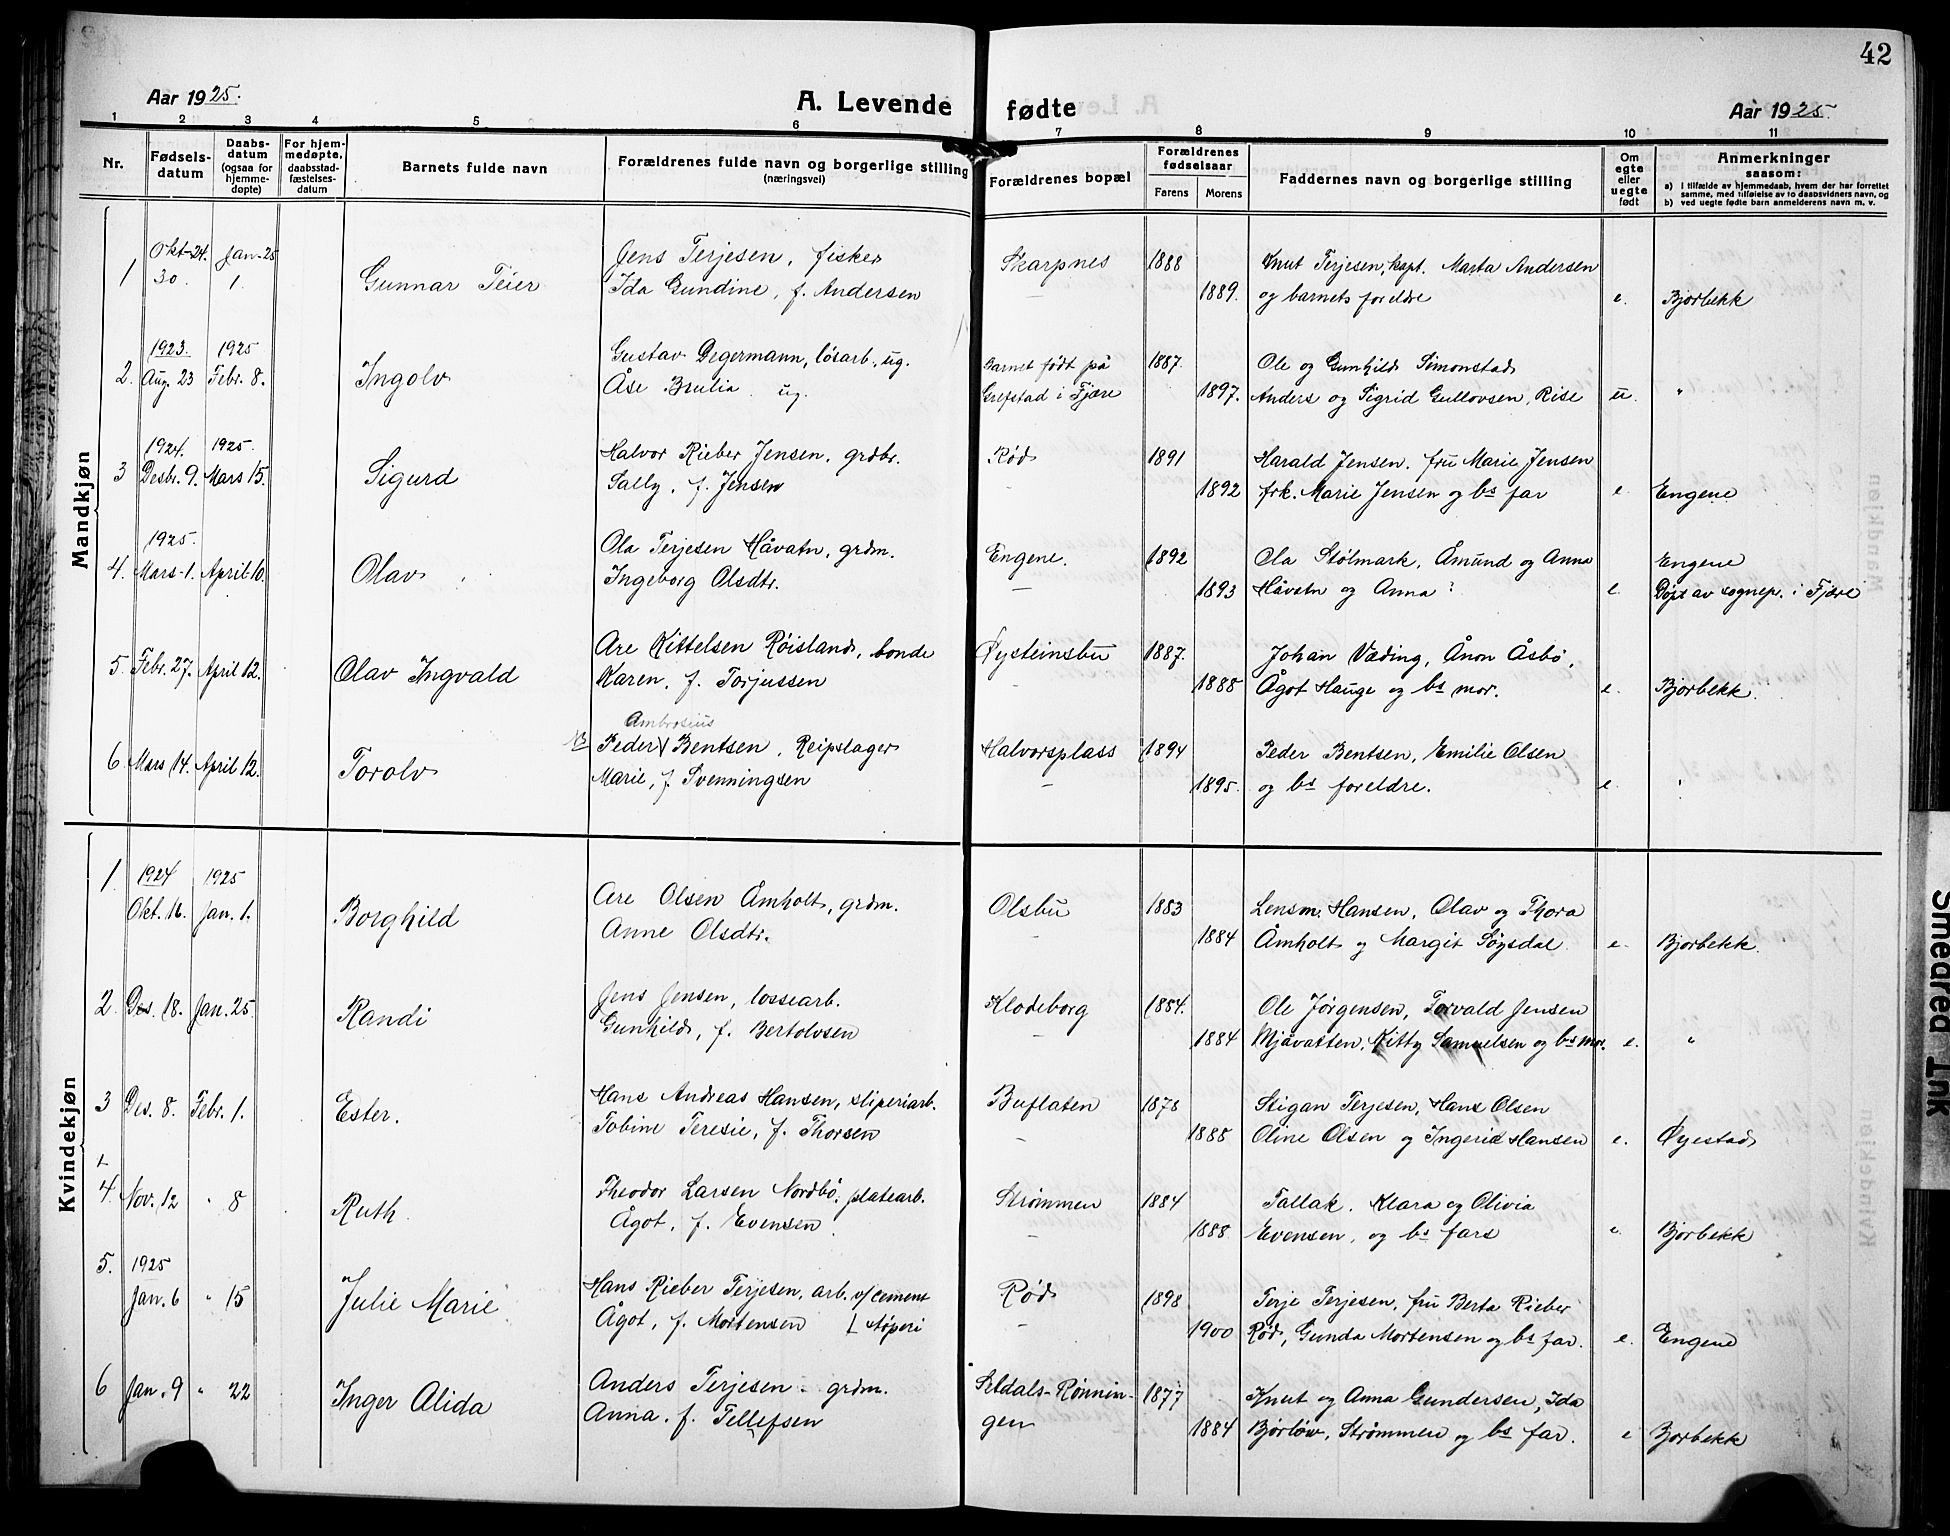 42
Aar 1925.
A. Levende fødte
Aar 1925.
1 2 3 4 5 6 7 8 9 10 11
Nr.
Fødselsdatum
Daabsdatum (ogsaa for hjemmedøpte)
For hjemmedøpte, daabsstadfæstelsesdatum
Barnets fulde navn
Forældrenes fulde navn og borgerlige stilling (næringsvei)
Forældrenes bopæl
Forældrenes fødselsaar
Farens Morens
Faddernes navn og borgerlige stilling
Om egte eller uegte født
Anmerkninger saasom:
a) I tilfælde av hjemmedaab, hvem der har forrettet samme, med tilføielse av to daabsvidners navn, og
b) ved uegte fødte barn anmelderens navn m. v.
Mandkjøn
Okt-24. Jan-25
1 30. 1. Gunnar Teier Jens Terjesen, fisker Skarpnes 1888 Knut Terjesen, kapt. Marta Andersen
Ida Gundine, f. Andersen — 1889. og barnets foreldre e. Bjorbekk
1923. 1925
2. Aug. 23 Febr. 8. Ingolv Gustav Degermann, løsarb., ug. Barnet født på 1887. Ole og Gunhild Simonstad
Åse Brulia ug. Grefstad i Fjære 1897. Anders og Sigrid Gullovsen, Rise u. "
1924. 1925.
3 Desbr. 9. Mars 15. Sigurd Halvor Rieber Jensen, grdbr. Rød 1891 Harald Jensen, fru Marie Jensen
Sally, f. Jensen - 1892 frk. Marie Jensen og bs far e. Engene
1925.
4. Mars 1. April 10. Olav Ola Terjesen Håvatn, grdm. Engene. 1892 Ola Stølmark, Åmund og Anna Engene
Ingeborg Olsdtr. — 1893 Håvatn og Anna ? e. Døpt av sognep. i Fjære
5. Febr. 27. April 12. Olav Ingvald Are Kittelsen Røisland, bonde Øysteinsbu 1887. Johan Væding, Ånon Åsbø,
Karen, f. Torjussen - 1888 Ågot Hauge og bs mor. e. Bjorbekk
Ambrosius
6. Mars 14. April 12. Torolv NB Peder Bentsen, Reipslager Halvorsplass 1894 Peder Bentsen, Emilie Olsen
Marie, f. Svenningsen — 1895. og bs foreldre. e. "
Kvindekjøn
1. 1924 1925
Okt. 16. Jan. 1. Borghild Are Olsen Åmholt, grdm. Olsbu 1883 Lensm. Hansen, Olav og Thora
Anne Olsdtr. - 1884 Åmholt og Margit Søysdal e. Bjorbekk.
2. Des. 18. Jan. 25. Randi Jens Jensen, lossearb. Klodeborg 1884. Ole Jørgensen, Torvald Jensen
Gunhild, f. Bertolvsen - 1884 Mjåvatten, Kitty Samuelsen og bs mor. e. "
3 Des. 8. Febr. 1. Ester. Hans Andreas Hansen, sliperiarb. Buflaten 1878 Stigan Terjesen, Hans Olsen
Tobine Teresie, f. Thorsen - 1885 Oline Olsen og Ingerid Hansen e. Øyestad
4. Nov. 12 " 8 Ruth. Theodor Larsen Nordbø, platearb. Strømmen 1884 Tallak, Klara og Olivia
Ågot, f. Evensen. - 1888 Evensen, og bs fars e. Bjorbekk
5. 1925
Jan. 6 " 15 Julie Marie Hans Rieber Terjesen, arb. v/cement Rød 1898 Terje Terjesen, fru Berta Rieber
Ågot, f. Mortensen støperi - 1900 Rød, Gunda Mortensen og bs far. e. Engene
6 Jan. 9 " 22 Inger Alida Anders Terjesen, grdm. Seldals-Rønnin- 1877 Knut og Anna Gundersen, Ida
Anna, f. Tellefsen gen 1884 Bjørløw, Strømmen og bs far. e Bjorbekk
Smeared Ink